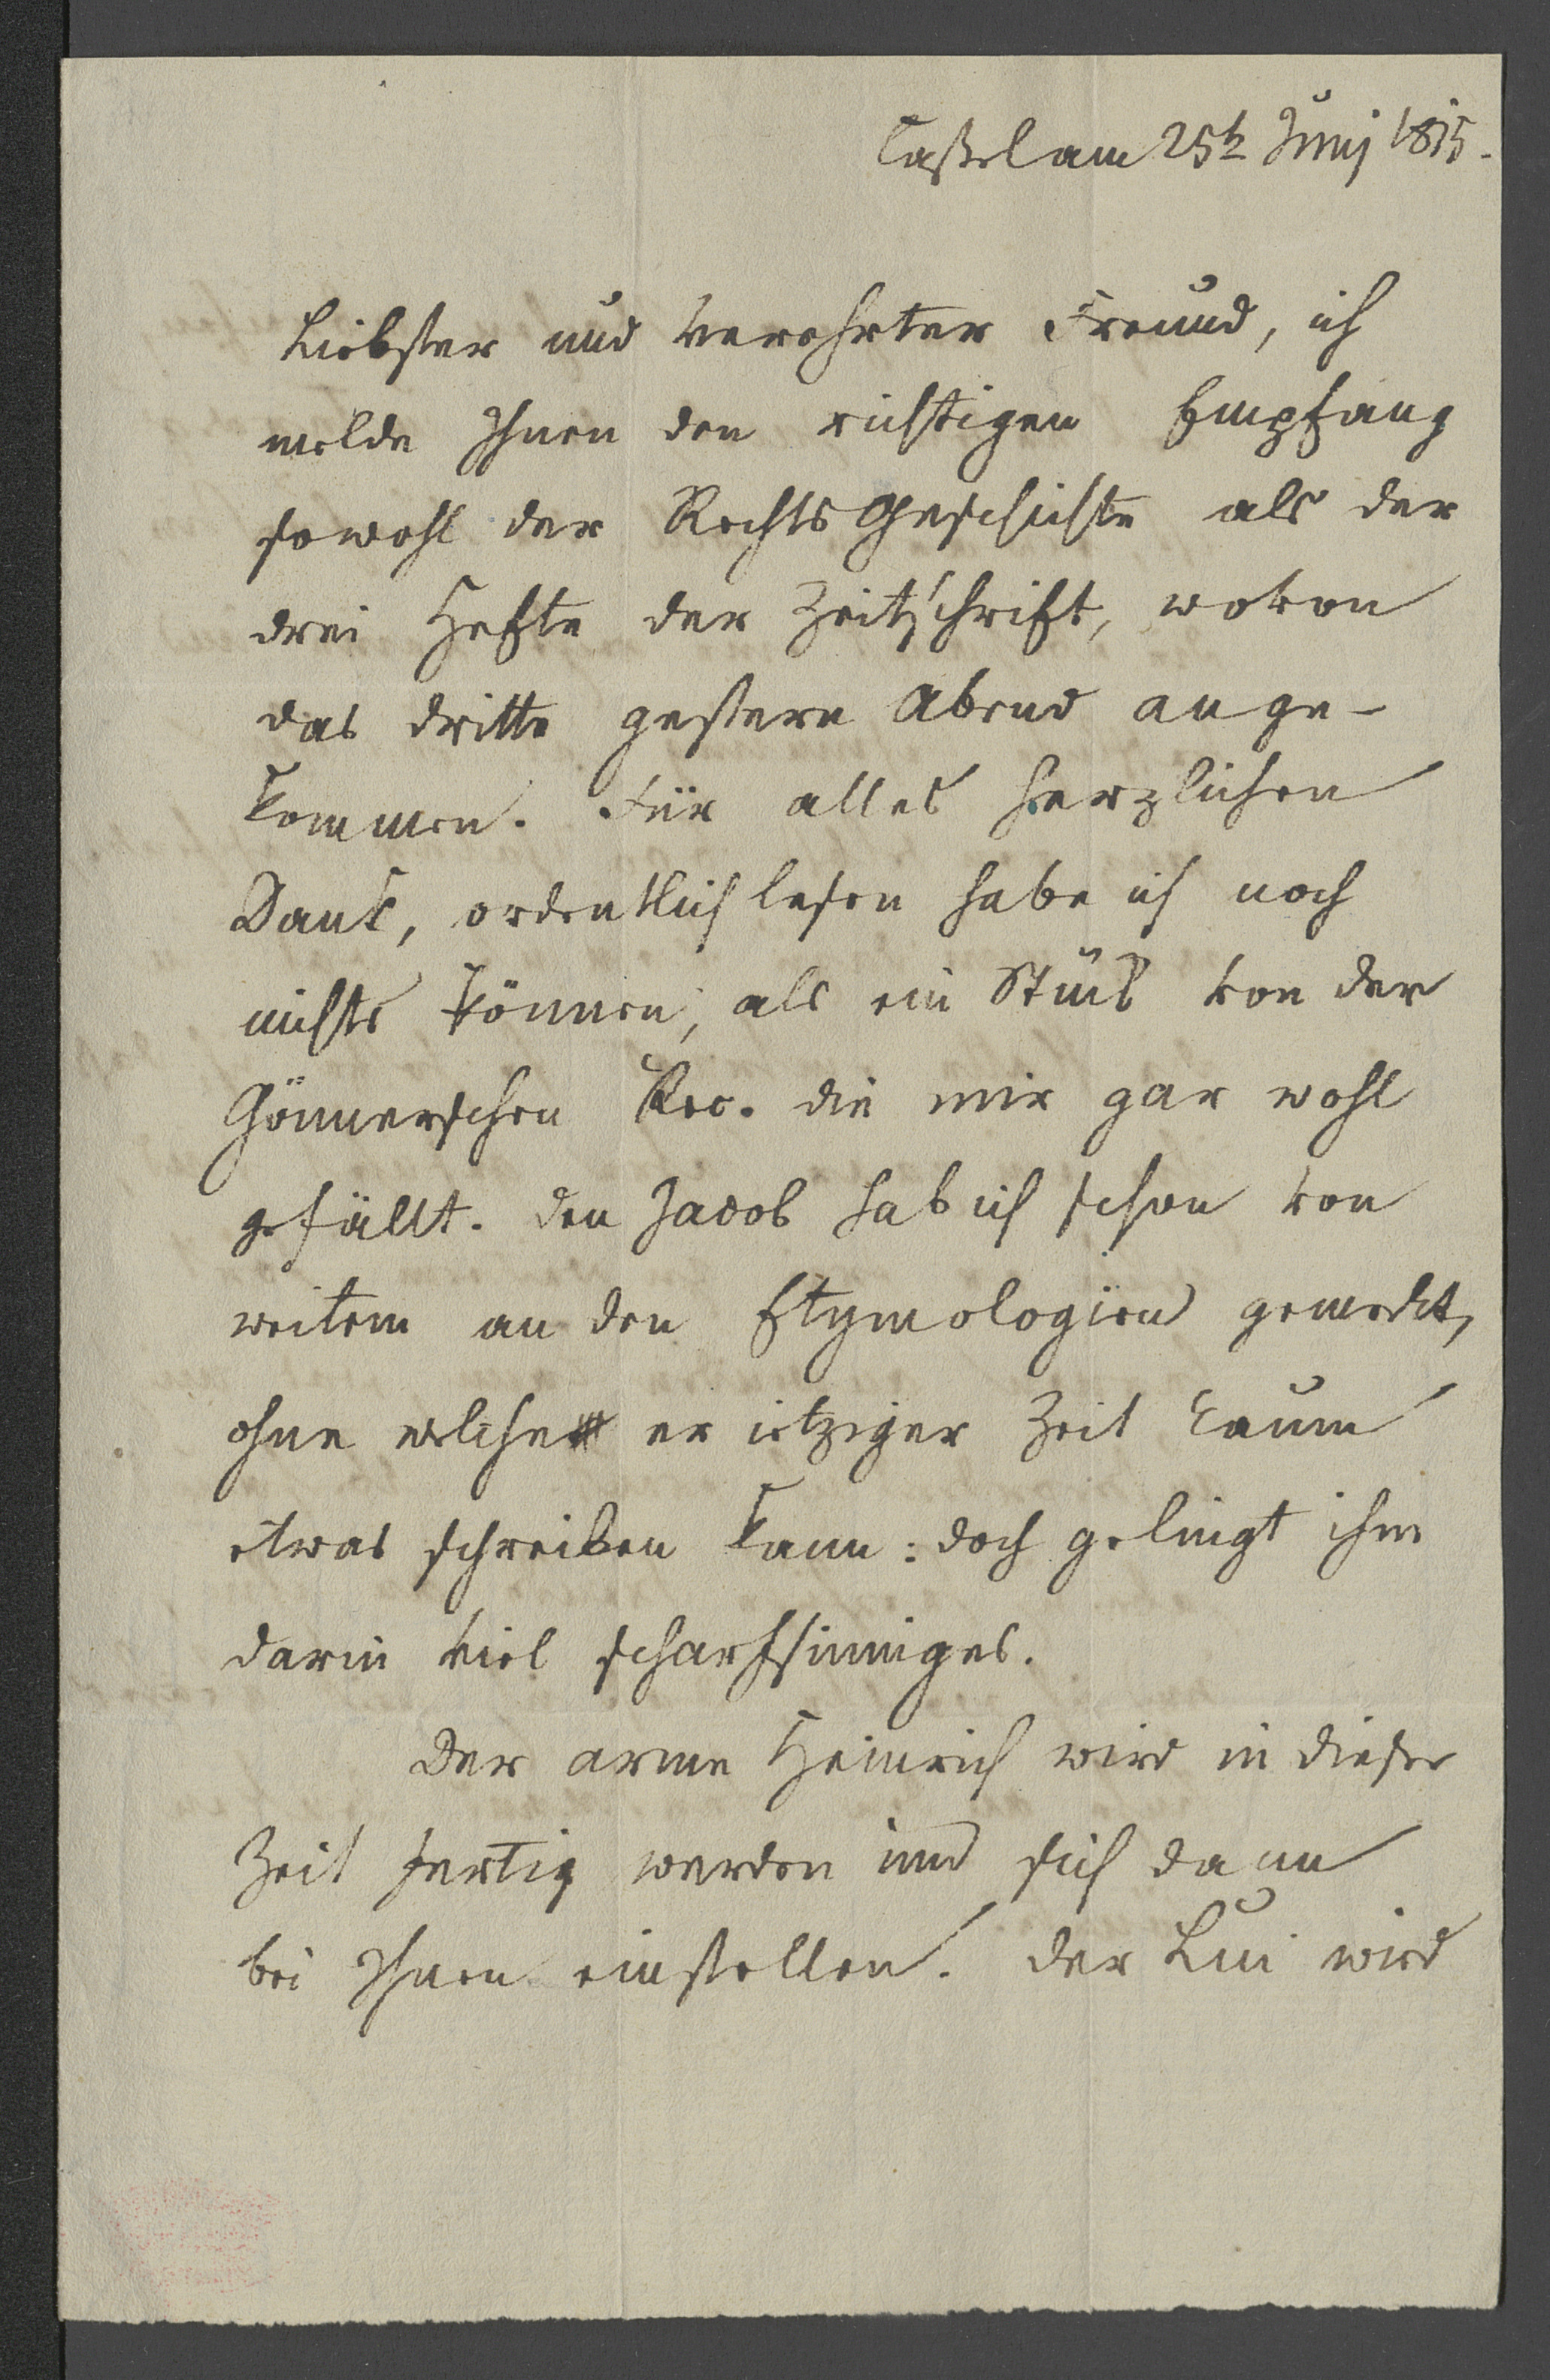 Caßel am 25t Junj 1815.
Liebster und verehrter Freund, ich
melde Ihnen den richtigen Empfang
sowohl der RechtsGeschichte als der
drei Hefte der Zeitschrift, wovon
das dritte gestern Abend ange-
kommen. Für alles herzlichen
Dank, ordentlich lesen habe ich noch
nichts können, als ein Stück von der
Gönnerschen Rec. die mir gar wohl
gefällt. Den Jacob hab ich schon von
weitem an den Etymologien gemerkt,
ohne welche er ietziger Zeit kaum
etwas schreiben kann: doch gelingt ihm
darin viel scharfsinniges.
Der arme Heinrich wird in dieser
Zeit fertig werden und sich dann
bei Ihnen einstellen. Der Lui wird